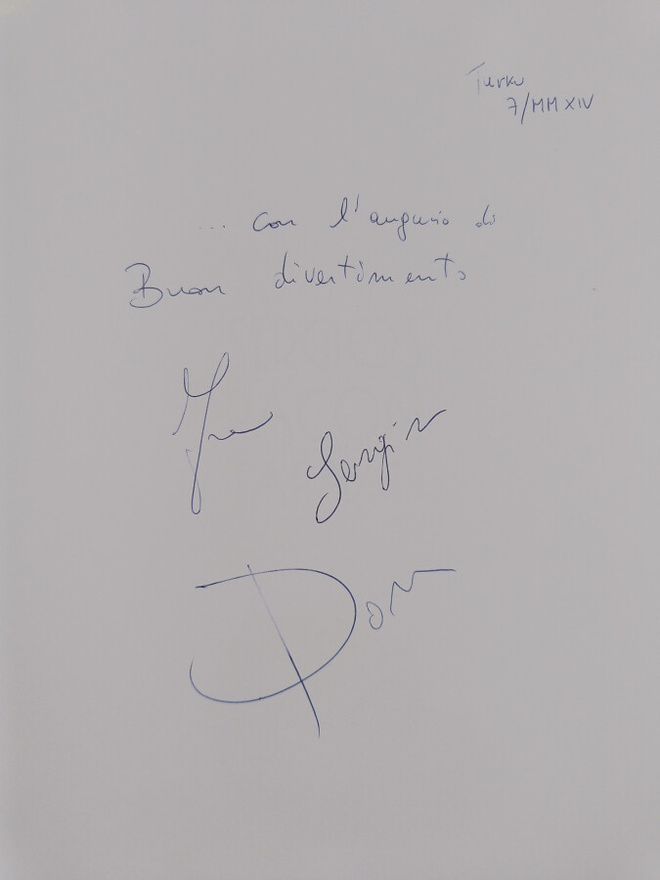 Turku
7/MMXIV
... con l'augurio di
Buon divertimento
Sergio